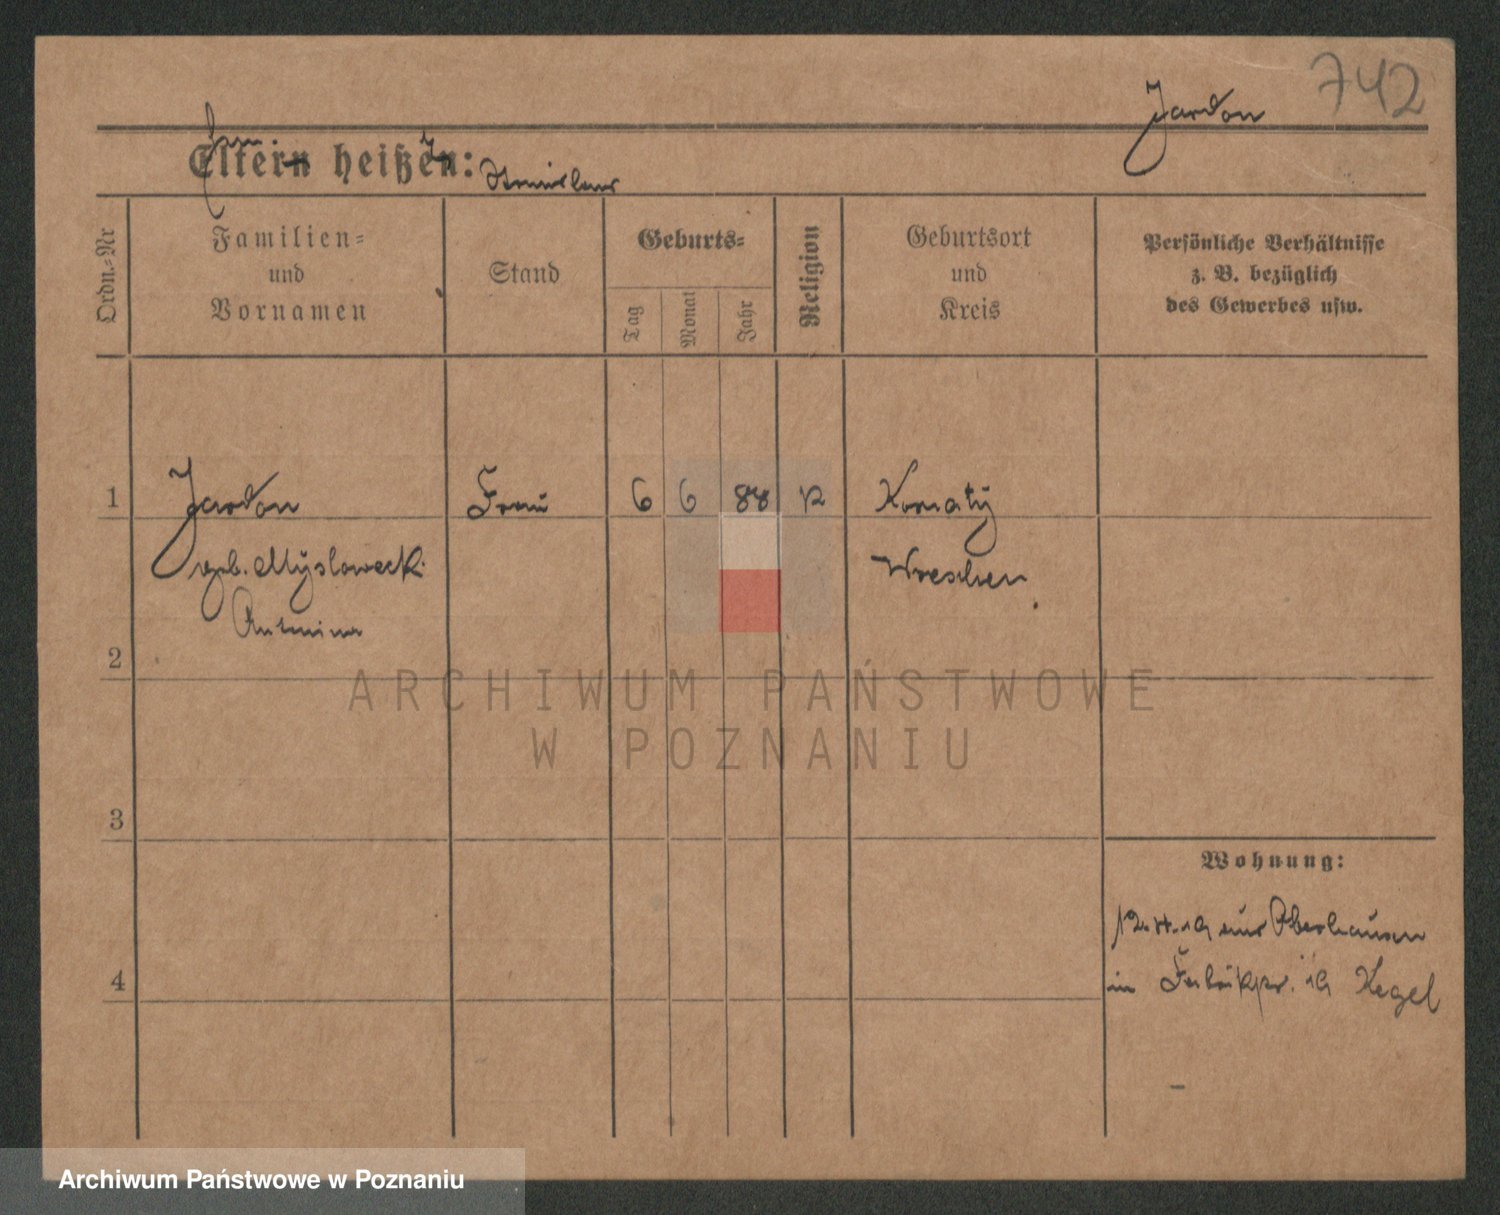 742
Jardon
Eltern heißen: Stanislaus
Ordn.=Nr
Familien=
und
Vornamen
Stand
Geburts=
Tag
Monat
Jahr
Religion
Geburtsort
und
Kreis
Persönliche Verhältnisse
z. B. bezüglich
des Gewerbes usw.
1
Jardon
Frau
6
6
88
Wreschen
geb. Myslowecki
2
ARCHIWUM PAŃSTWOWE
W POZNANIU
3
Wohnung:
Oberhausen
4
in 19 Kegel
Archiwum Państwowe w Poznaniu